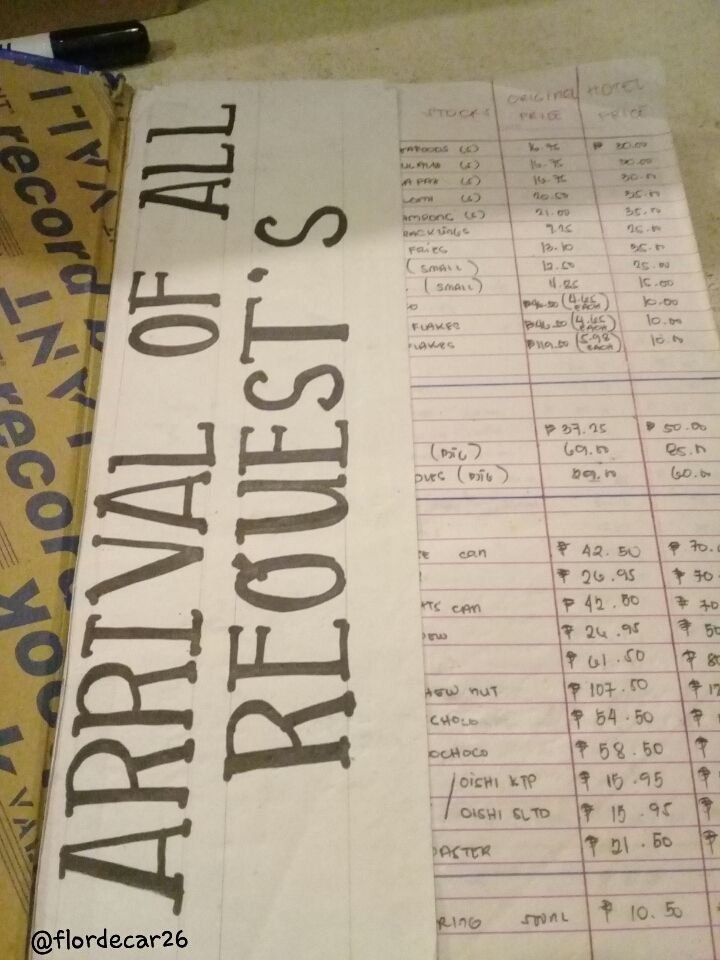 ARRIVAL OF ALL
REQUEST'S
STOCKS ORIGINAL PRICE HOTEL PRICE
(S) 16.75 ₱ 30.00
(S) 16.75 30.00
(S) 16.75 30.00
(S) 20.50 35.00
(S) 21.00 35.00
RACKLINGS 9.25 25.00
FRIES 13.10 35.00
(SMALL) 12.50 25.00
(SMALL) 4.25 15.00
₱96.50 (4.65 EACH) 10.00
FLAKES (4.65 EACH) 10.00
FLAKES ₱119.50 (5.98 EACH) 10.00
₱ 37.25 ₱ 50.00
(BIG) 69.00 85.00
(BIG) 60.00
can ₱ 42.50 ₱ 70.
₱ 26.95 ₱ 70
TS CAN ₱ 42.50 ₱ 70
₱ 26.95 ₱ 50
₱ 61.50 ₱ 8
HEW NUT ₱ 107.50 ₱ 1
CHOCO ₱ 54.50 ₱ 1
OCHOCO ₱ 58.50 ₱
OISHI KTP ₱ 15.95 ₱
OISHI SLTD ₱ 15.95 ₱
ASTER ₱ 21.50 ₱
RING SMALL ₱ 10.50
record
record
VA
@flordecar26